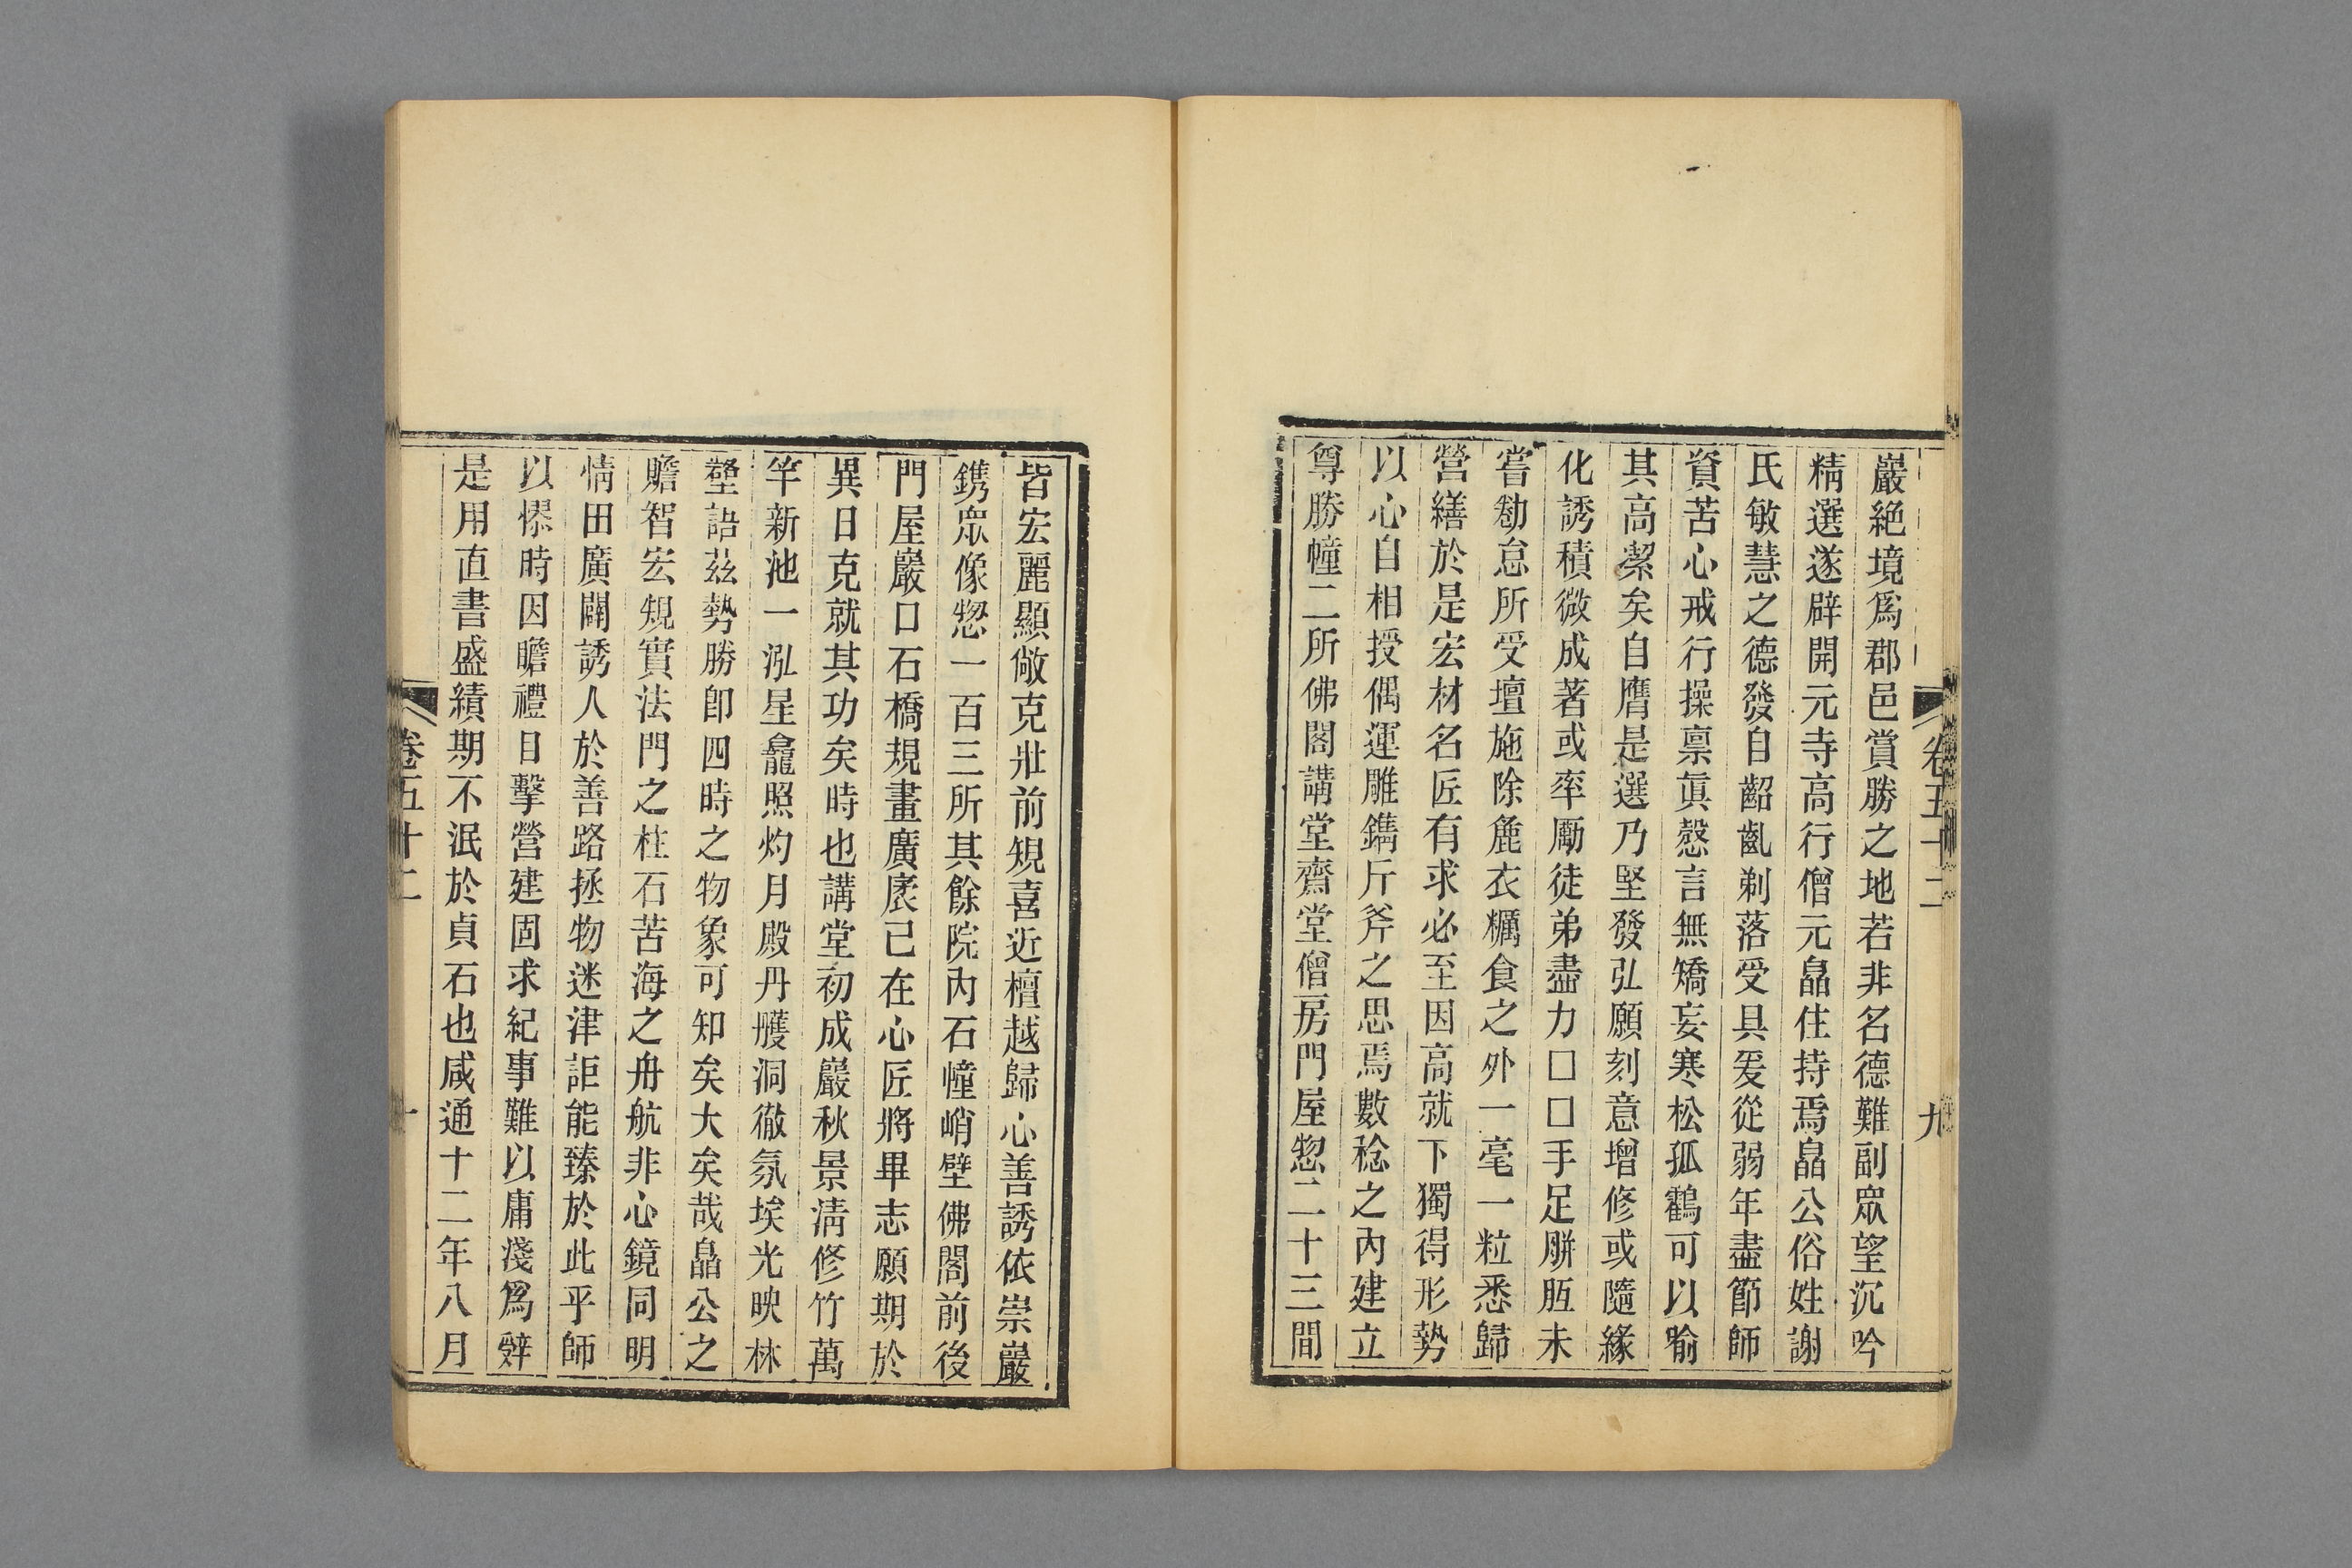 巖絕境爲郡邑賞勝之地若非名德難副眾望沉吟
精選遂辟開元寺高行僧元皛住持焉皛公俗姓謝
氏敏慧之德發自齠齓剃落受具爰從弱年盡節師
資苦心戒行操禀眞慤言無矯妄寒松孤鶴可以喻
其高潔矣自膺是選乃堅發弘願刻意增修或隨緣
化誘積微成著或率勵徒弟盡力□□手足胼胝未
嘗勌怠所受壇施除麁衣糲食之外一毫一粒悉歸
營繕於是宏材名匠有求必至因高就下獨得形勢
以心自相授偶運雕鐫斤斧之思焉數稔之內建立
尊勝幢二所佛閣講堂齋堂僧房門屋惣二十三間
卷五十二
九
皆宏麗顯敞克壯前規喜近檀越歸心善誘依崇巖
鐫眾像惣一百三所其餘院內石幢峭壁佛閣前後
門屋巖口石橋規畫廣庡已在心匠將畢志願期於
異日克就其功矣時也講堂初成巖秋景清修竹萬
竿新池一泓星龕照灼月殿丹雘洞徹氛埃光映林
壑語茲勢勝卽四時之物象可知矣大矣哉皛公之
贍智宏規實法門之柱石苦海之舟航非心鏡同明
情田廣闢誘人於善路拯物迷津詎能臻於此乎師
以㥽時因瞻禮目擊營建固求紀事難以庸淺爲辤
是用直書盛績期不泯於貞石也咸通十二年八月
卷五十二
十